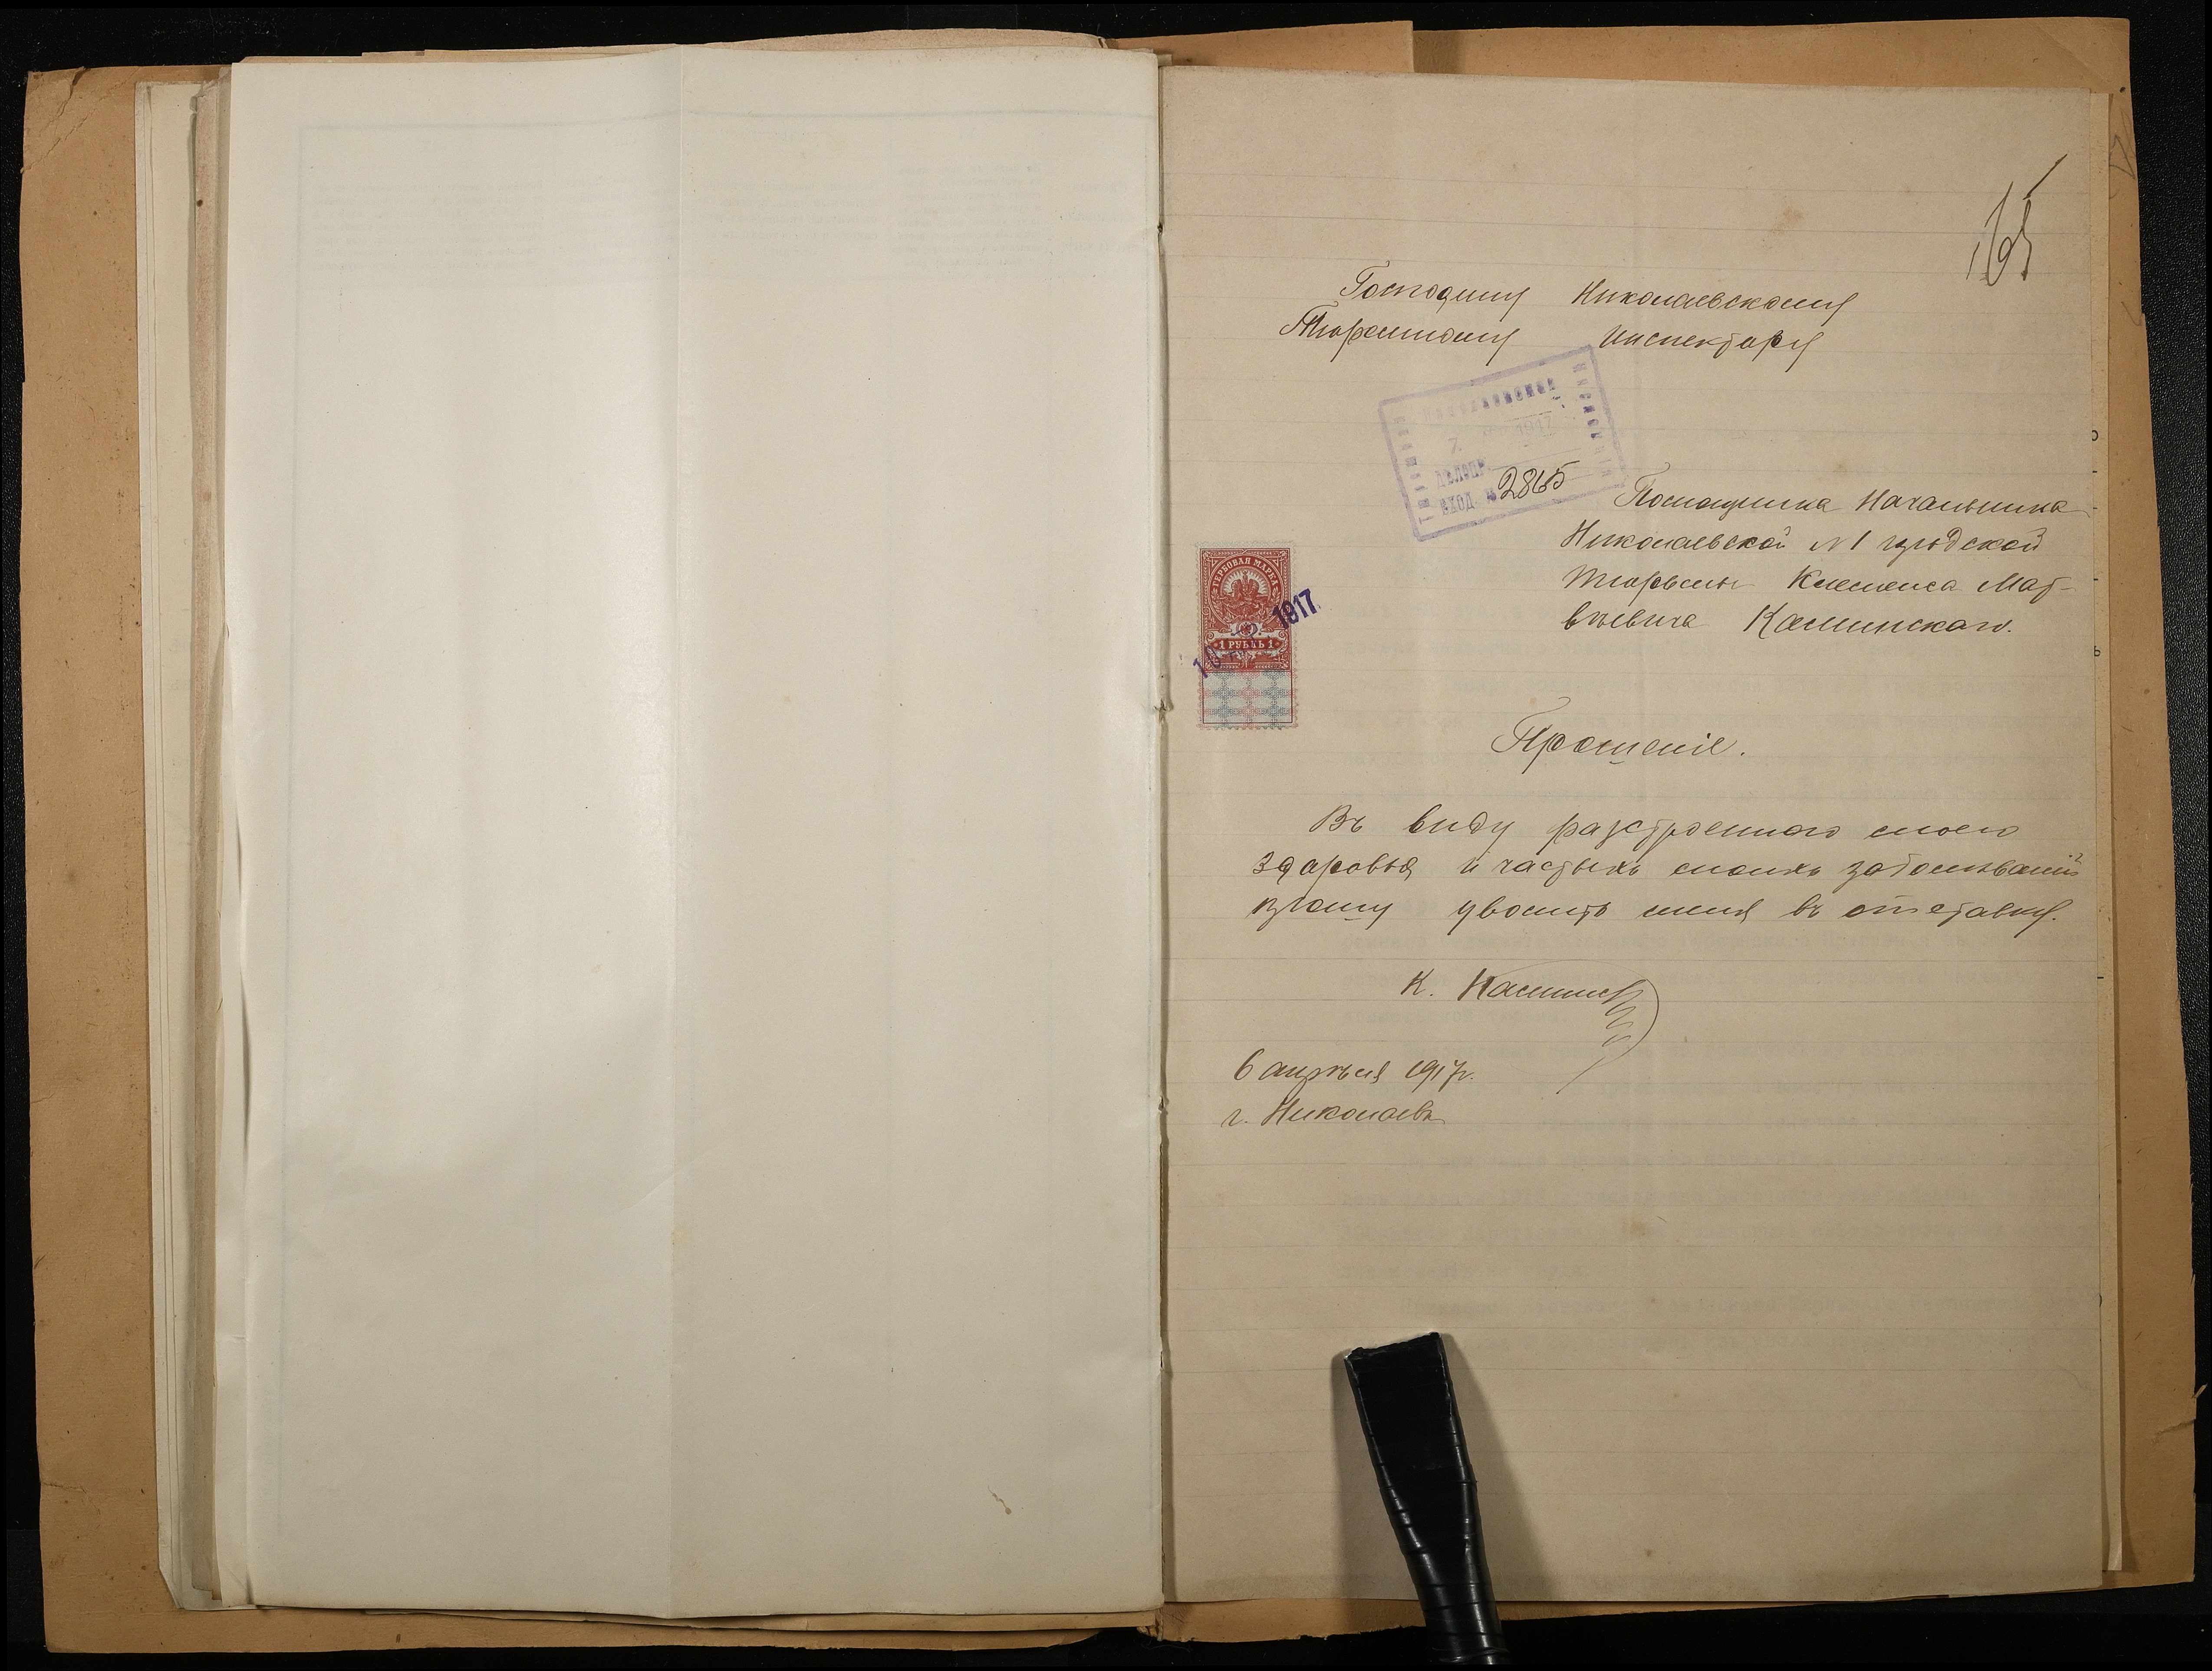 165
Господину Николаевскому
Тюремному Инспектору
НИКОЛАЕВСКАЯ
ТЮРЕМНАЯ
ИНСПЕКЦІЯ
7 1917
ВХОД. № 2865
Помощника Начальника
Николаевской №1 городской
тюрьмы Клеменса Мат-
вѣевича Каминскаго.
ГЕРБОВАЯ МАРКА
1917
1 РУБЛЬ 1
Прошеніе.
Въ виду разстроеннаго моего
здоровья и частыхъ моихъ заболѣваній
прошу уволить меня въ отставку.
К. Каминскій
6 апрѣля 1917г.
г. Николаевъ